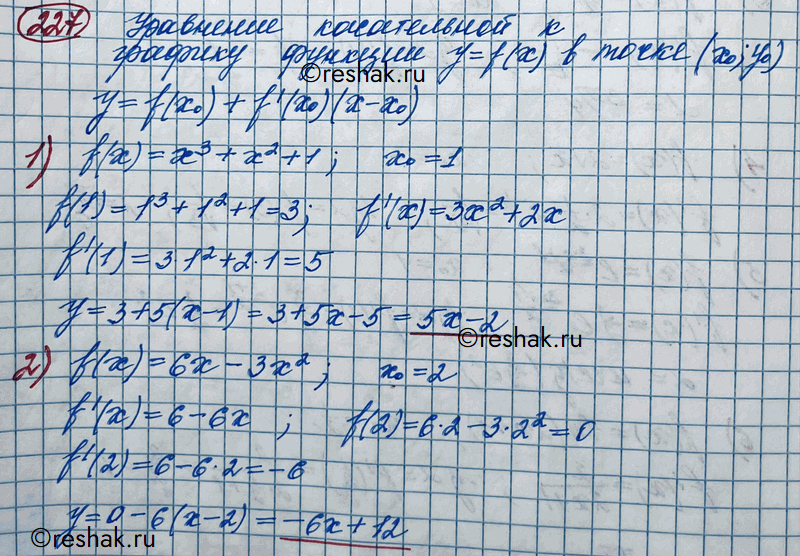 227) Уравнение касательной к
графику функции y=f(x) в точке (x₀; y₀)
©reshak.ru
y=f(x₀)+f'(x₀)(x-x₀)
1) f(x)=x³+x²+1; x₀=1
f(1)=1³+1²+1=3; f'(x)=3x²+2x
f'(1)=3·1²+2·1=5
y=3+5(x-1)=3+5x-5=5x-2
©reshak.ru
2) f(x)=6x-3x²; x₀=2
f'(x)=6-6x; f(2)=6·2-3·2²=0
f'(2)=6-6·2=-6
y=0-6(x-2)=-6x+12
©reshak.ru